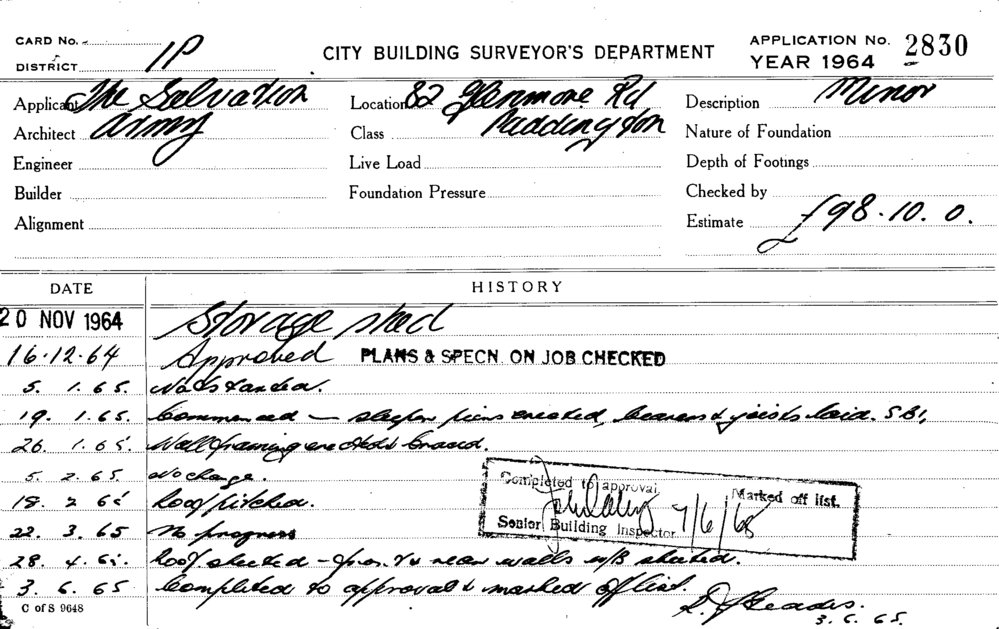 CARD No.
DISTRICT 1P
CITY BUILDING SURVEYOR'S DEPARTMENT
APPLICATION No. 2830
YEAR 1964
Applicant The Salvation
Army
Architect
Engineer
Builder
Alignment
Location 82 Glenmore Rd
Paddington
Class
Live Load
Foundation Pressure
Description Minor
Nature of Foundation
Depth of Footings
Checked by
Estimate £98.10.0.
DATE HISTORY
20 NOV 1964 Storage shed
16.12.64 Approved PLANS & SPECN. ON JOB CHECKED
5. 1. 65. Not started.
19. 1.65. Commenced — sleeper piers erected, bearers & joists laid.
26. 1.65. Wall framing erected & braced.
5. 2. 65. No change.
18. 2 65 Roof pitched.
22. 3. 65 No progress
28. 4. 65. Roof sheeted - front & rear walls w/B sheeted.
3. 6. 65 Completed to approval & marked off list.
3. 6. 65.
Completed to approval Marked off list.
7/6/65
Senior Building Inspector
C of S 9648